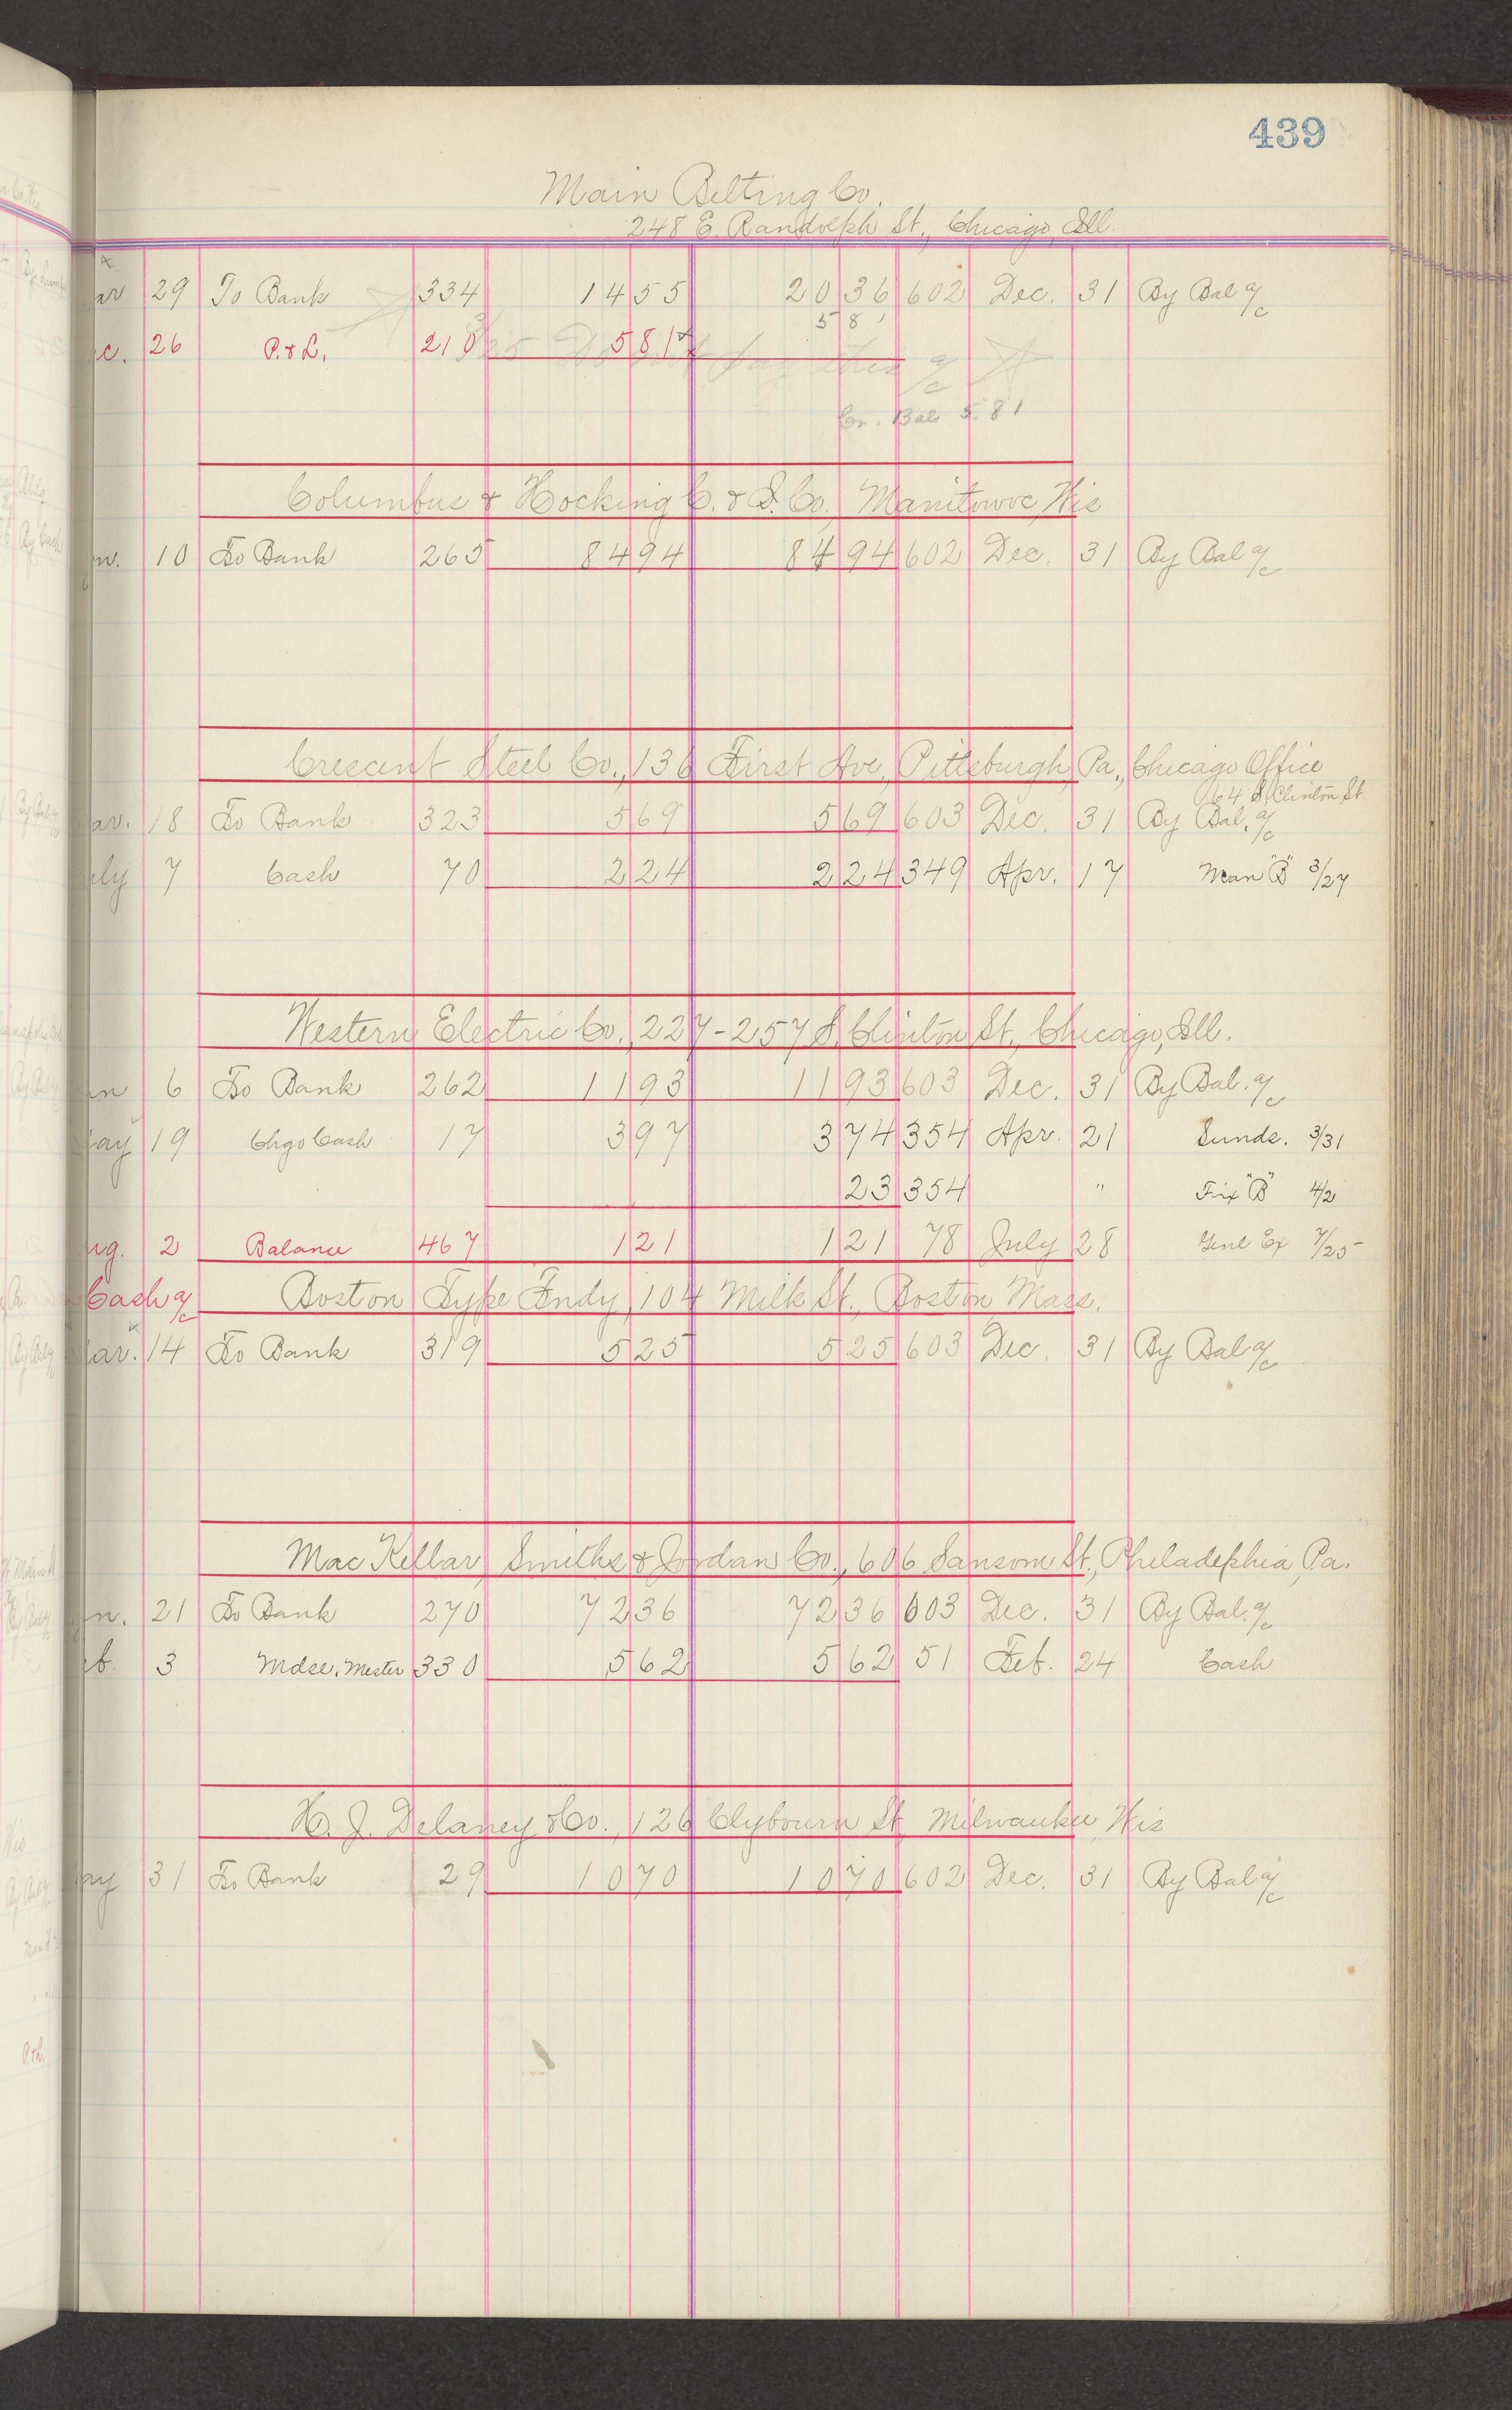 439
Main Belting Co.
248 E. Randolph St., Chicago, Ill.
ar 29 To Bank 334 14 55 20 36 602 Dec. 31 By Bal a/c
5 8 1
c. 26 P. & L. 210 5 81
pay this a/c
Cr. Bal 5.81
Columbus & Hocking C. & I. Co., Manitowoc, Wis
n. 10 To Bank 265 84 94 84 94 602 Dec. 31 By Bal a/c
Crescent Steel Co., 136 First Ave, Pittsburgh, Pa., Chicago Office
64 S. Clinton St.
ar. 18 To Bank 323 5 69 5 69 603 Dec. 31 By Bal. a/c
ly 7 Cash 70 2 24 2 24 349 Apr. 17 Man "B" 3/27
Western Electric Co., 227-257 S. Clinton St., Chicago, Ill.
n 6 To Bank 262 11 93 11 93 603 Dec. 31 By Bal. a/c
ay 19 Chgo Cash 17 3 97 3 74 354 Apr. 21 Sunds. 3/31
23 354 " Fix "B" 4/2
ug. 2 Balance 467 1 21 1 21 78 July 28 Genl Ex 7/25
Cash a/c Boston Type Fndy, 104 Milk St., Boston Mass.
ar. 14 To Bank 319 5 25 5 25 603 Dec. 31 By Bal a/c
Mac Kellar, Smiths & Jordan Co., 606 Sansom St., Philadelphia, Pa.
n. 21 To Bank 270 72 36 72 36 603 Dec. 31 By Bal. a/c
b. 3 Mdse. Mester 330 5 62 5 62 51 Feb. 24 Cash
H. J. Delaney & Co., 126 Clybourn St, Milwaukee, Wis
ay 31 To Bank 29 10 70 10 70 602 Dec. 31 By Bal a/c